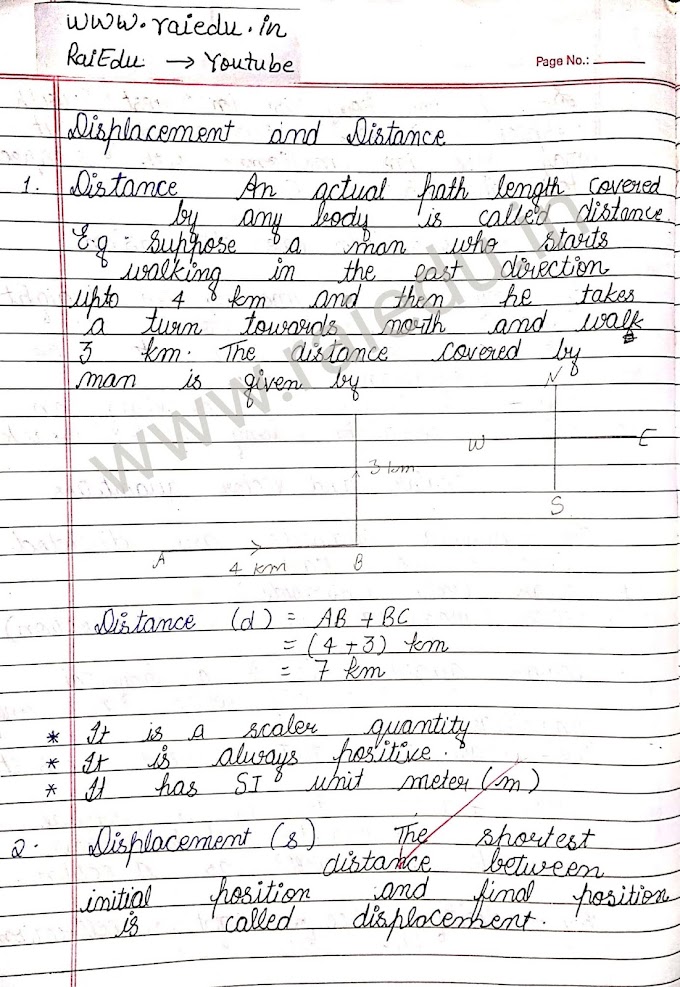 www.raiedu.in
RaiEdu → Youtube
Page No.:
Displacement and Distance
1. Distance An actual path length covered
by any body is called distance
E.g Suppose a man who starts
walking in the east direction
upto 4 km and then he takes
a turn towards north and walk
3 km. The distance covered by
man is given by
N
W E
3 km
S
A
4 km B
Distance (d) = AB + BC
= (4 + 3) km
= 7 km
* It is a scaler quantity
* It is always positive.
* It has SI unit meter (m)
2. Displacement (s) The shortest
distance between
initial position and final position
is called displacement.
www.raiedu.in